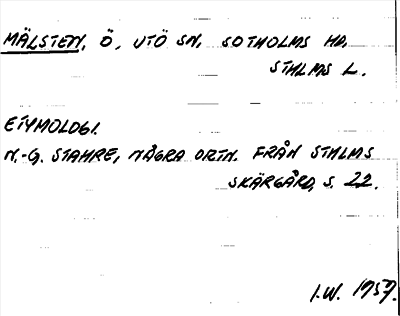 MÄLSTEN, Ö, UTÖ SN, SOTHOLMS HD,
STHLMS L.
ETYMOLOGI.
N.-G. STAHRE, NÅGRA ORTN. FRÅN STHLMS
SKÄRGÅRD, S. 22.
I.W. 1957.